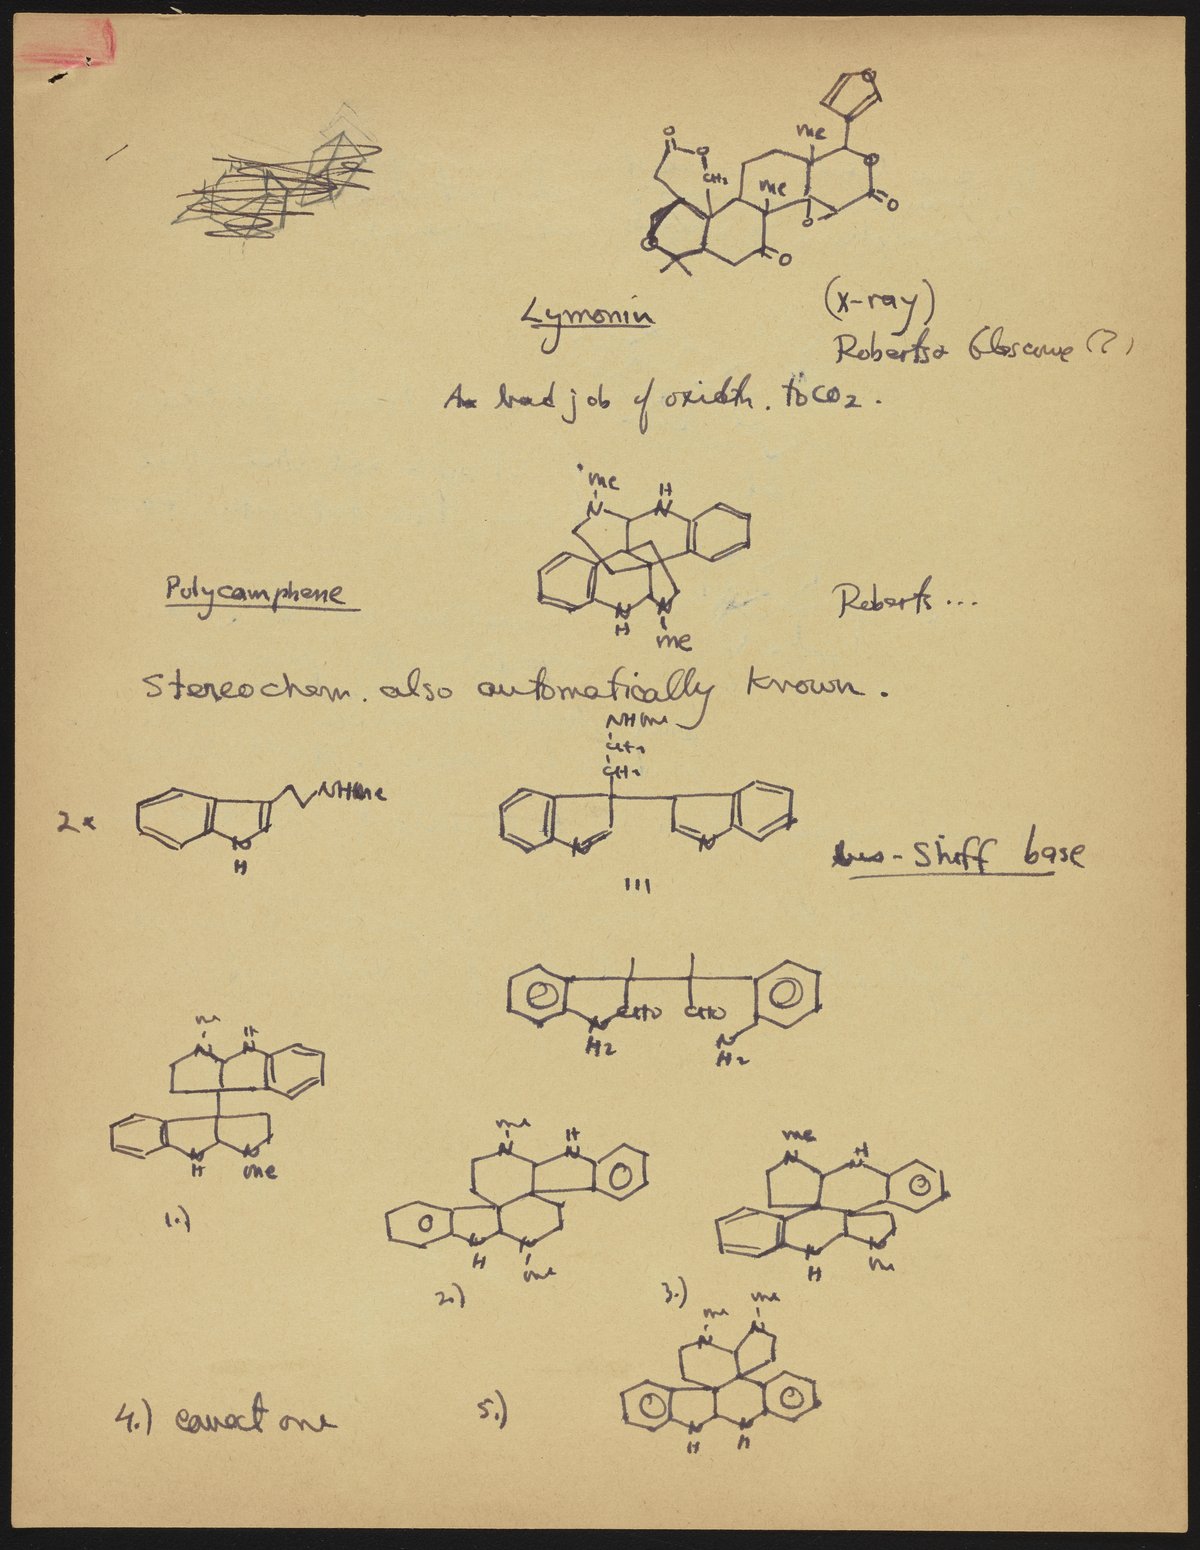 O
O
CH2
Me
Me
O
O
O
O
O
Lymonin
(x-ray)
Roberts
(?)
bad job of oxidtn. to CO2.
Me
N
H
N
N
H
N
Me
Polycamphene
Roberts...
Stereochem. also automatically known.
NHMe
CH2
CH2
2x
NHMe
N
H
N
N
-Shiff base
CHO
CHO
N
H2
N
H2
me
N
H
N
N
H
N
me
1.)
me
N
H
N
N
H
N
me
2.)
me
N
H
N
N
H
N
me
3.)
me
me
N
N
N
H
N
H
4.) correct one
5.)